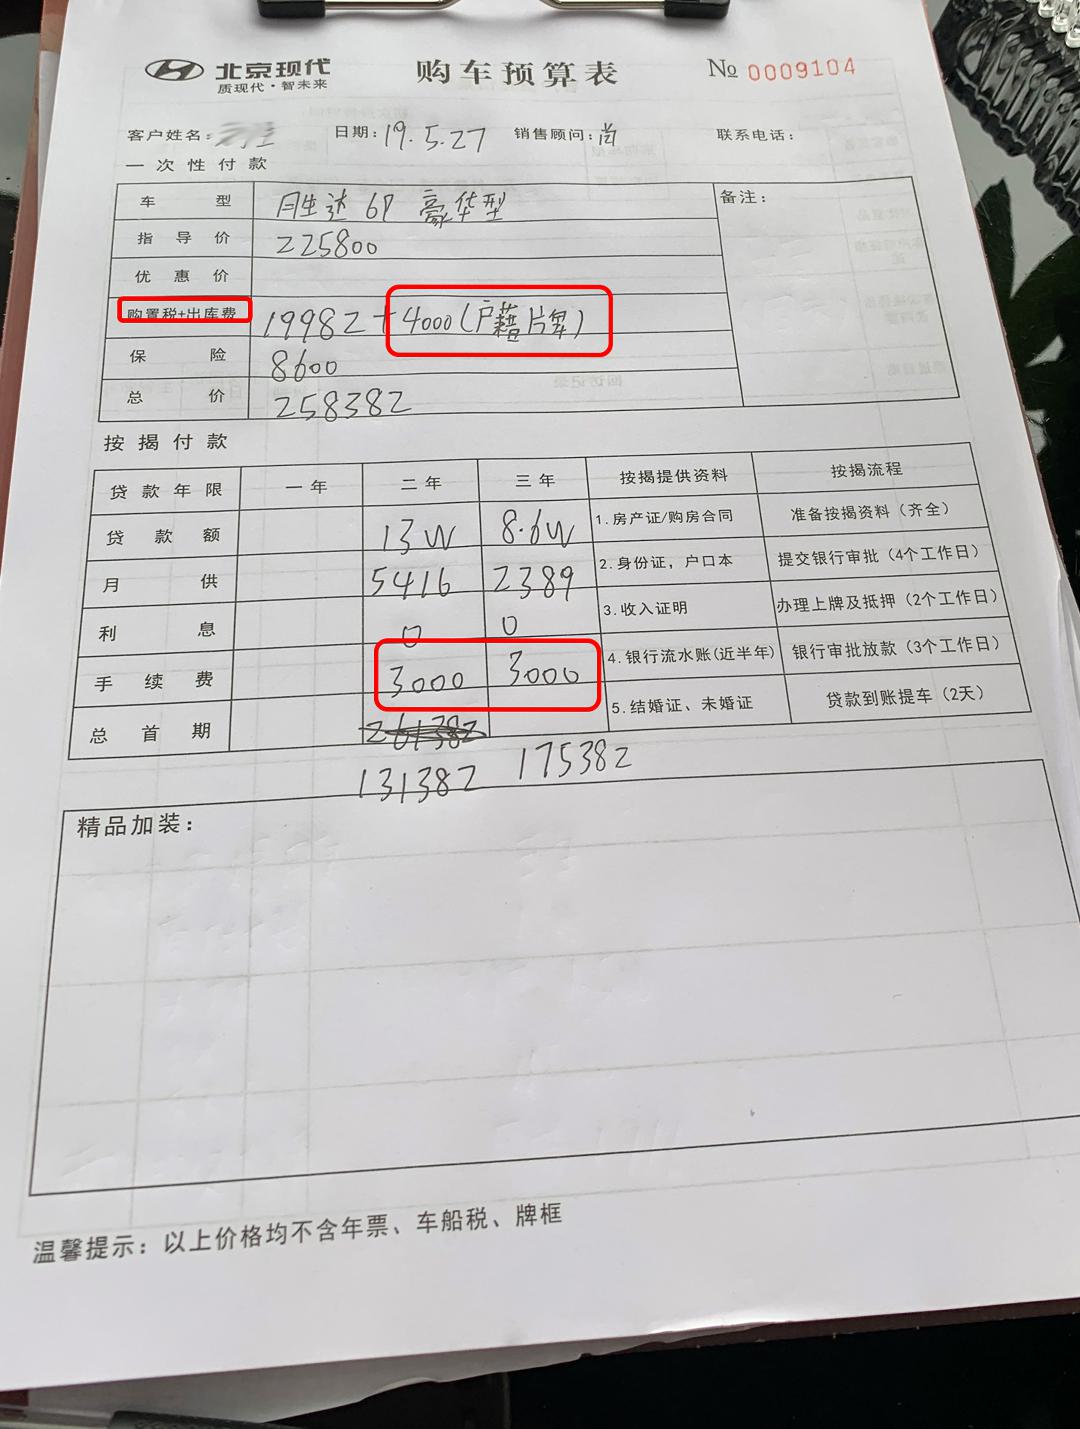 北京现代 购车预算表 № 0009104
质现代·智未来
客户姓名: 日期: 19.5.27 销售顾问: 尚 联系电话:
一次性付款
车型 胜达 6P 豪华型 备注:
指导价 225800
优惠价
购置税+出库费 19982 + 4000(户籍片牌)
保险 8600
总价 258382
按揭付款
贷款年限 一年 二年 三年 按揭提供资料 按揭流程
贷款额 13W 8.6W 1.房产证/购房合同 准备按揭资料(齐全)
月供 5416 2389 2.身份证,户口本 提交银行审批(4个工作日)
利息 0 0 3.收入证明 办理上牌及抵押(2个工作日)
手续费 3000 3000 4.银行流水账(近半年) 银行审批放款(3个工作日)
总首期 261382 5.结婚证、未婚证 贷款到账提车(2天)
131382 175382
精品加装:
温馨提示:以上价格均不含年票、车船税、牌框